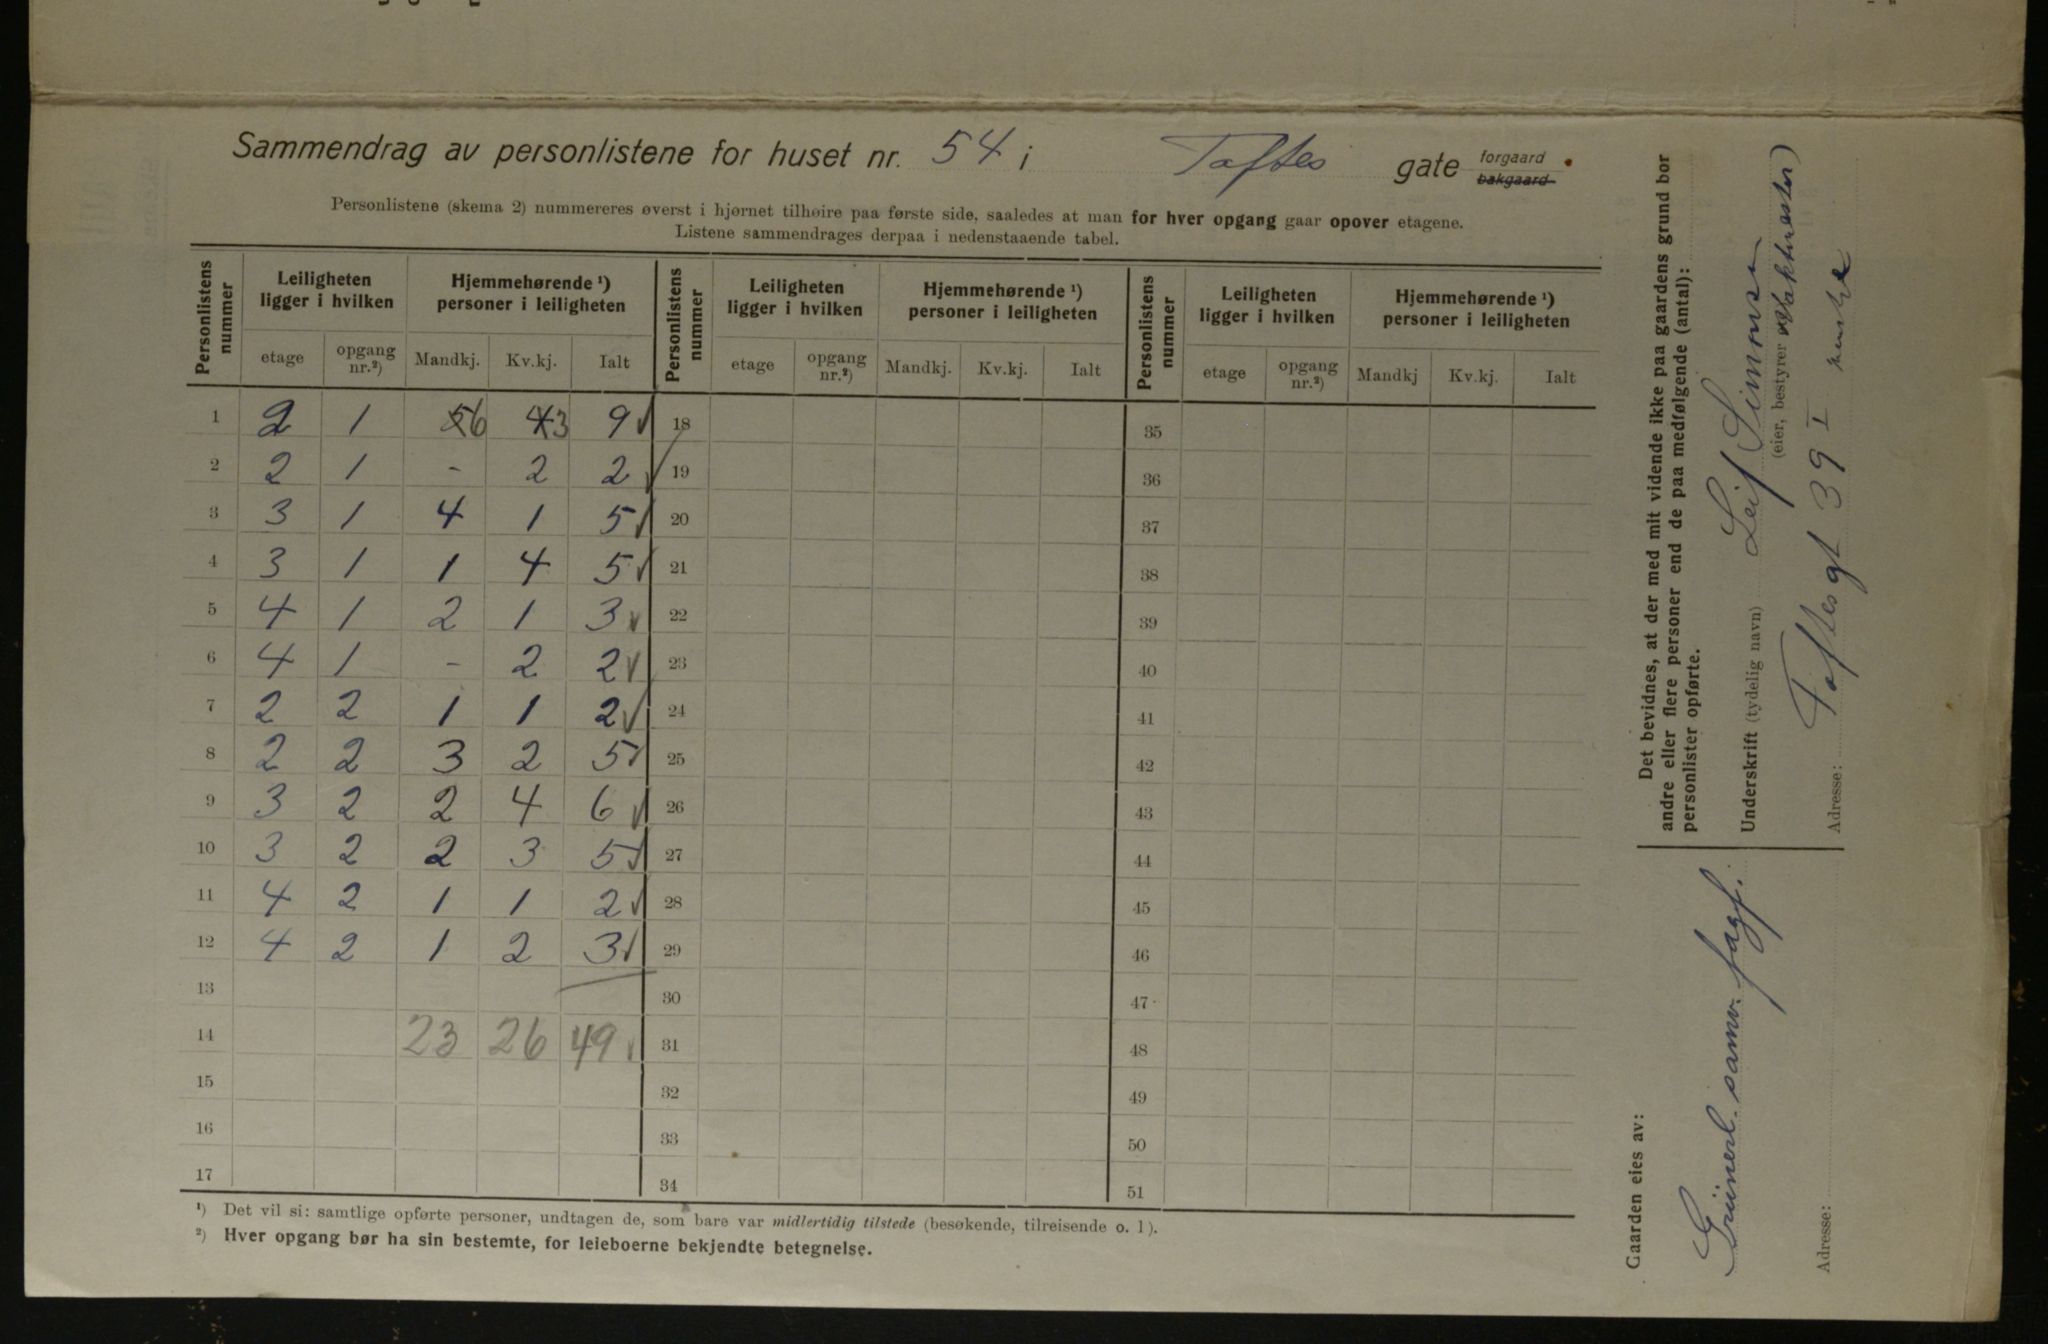 Sammendrag av personlistene for huset nr. 54 i Toftes gate forgaard bakgaard
Personlistene (skema 2) nummereres øverst i hjørnet tilhøire paa første side, saaledes at man for hver opgang gaar opover etagene.
Listene sammendrages derpaa i nedenstaaende tabel.
Personlistens nummer Leiligheten ligger i hvilken Hjemmehørende ¹) personer i leiligheten Personlistens nummer Leiligheten ligger i hvilken Hjemmehørende ¹) personer i leiligheten Personlistens nummer Leiligheten ligger i hvilken Hjemmehørende ¹) personer i leiligheten
etage opgang nr.²) Mandkj. Kv.kj. Ialt etage opgang nr.²) Mandkj. Kv.kj. Ialt etage opgang nr.²) Mandkj Kv.kj. Ialt
1 2 1 5 6 4 3 9 ✓ 18 35
2 2 1 - 2 2 ✓ 19 36
3 3 1 4 1 5 ✓ 20 37
4 3 1 1 4 5 ✓ 21 38
5 4 1 2 1 3 ✓ 22 39
6 4 1 - 2 2 ✓ 23 40
7 2 2 1 1 2 ✓ 24 41
8 2 2 3 2 5 ✓ 25 42
9 3 2 2 4 6 ✓ 26 43
10 3 2 2 3 5 ✓ 27 44
11 4 2 1 1 2 ✓ 28 45
12 4 2 1 2 3 ✓ 29 46
13 30 47
14 23 26 49 ✓ 31 48
15 32 49
16 33 50
17 34 51
¹) Det vil si: samtlige opførte personer, undtagen de, som bare var midlertidig tilstede (besøkende, tilreisende o. l).
²) Hver opgang bør ha sin bestemte, for leieboerne bekjendte betegnelse.
Det bevidnes, at der med mit vidende ikke paa gaardens grund bor
andre eller flere personer end de paa medfølgende (antal):
personlister opførte.
Underskrift (tydelig navn) Leif Simonsen
(eier, bestyrer vaktmester)
Adresse: Toftes gt 39 I
Gaarden eies av:
Grünerl. samv. fagf.
Adresse: